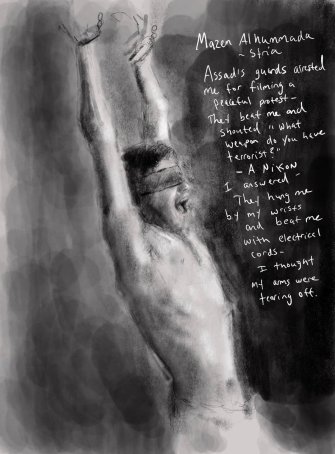 Mazen Alhummada
~ Syria
Assad's guards arrested
me for filming a
peaceful protest -
They beat me and
shouted "what
weapon do you have
terrorist?"
- A Nikon
I answered -
They hung me
by my wrists
and beat me
with electrical
cords -
I thought
my arms were
tearing off.